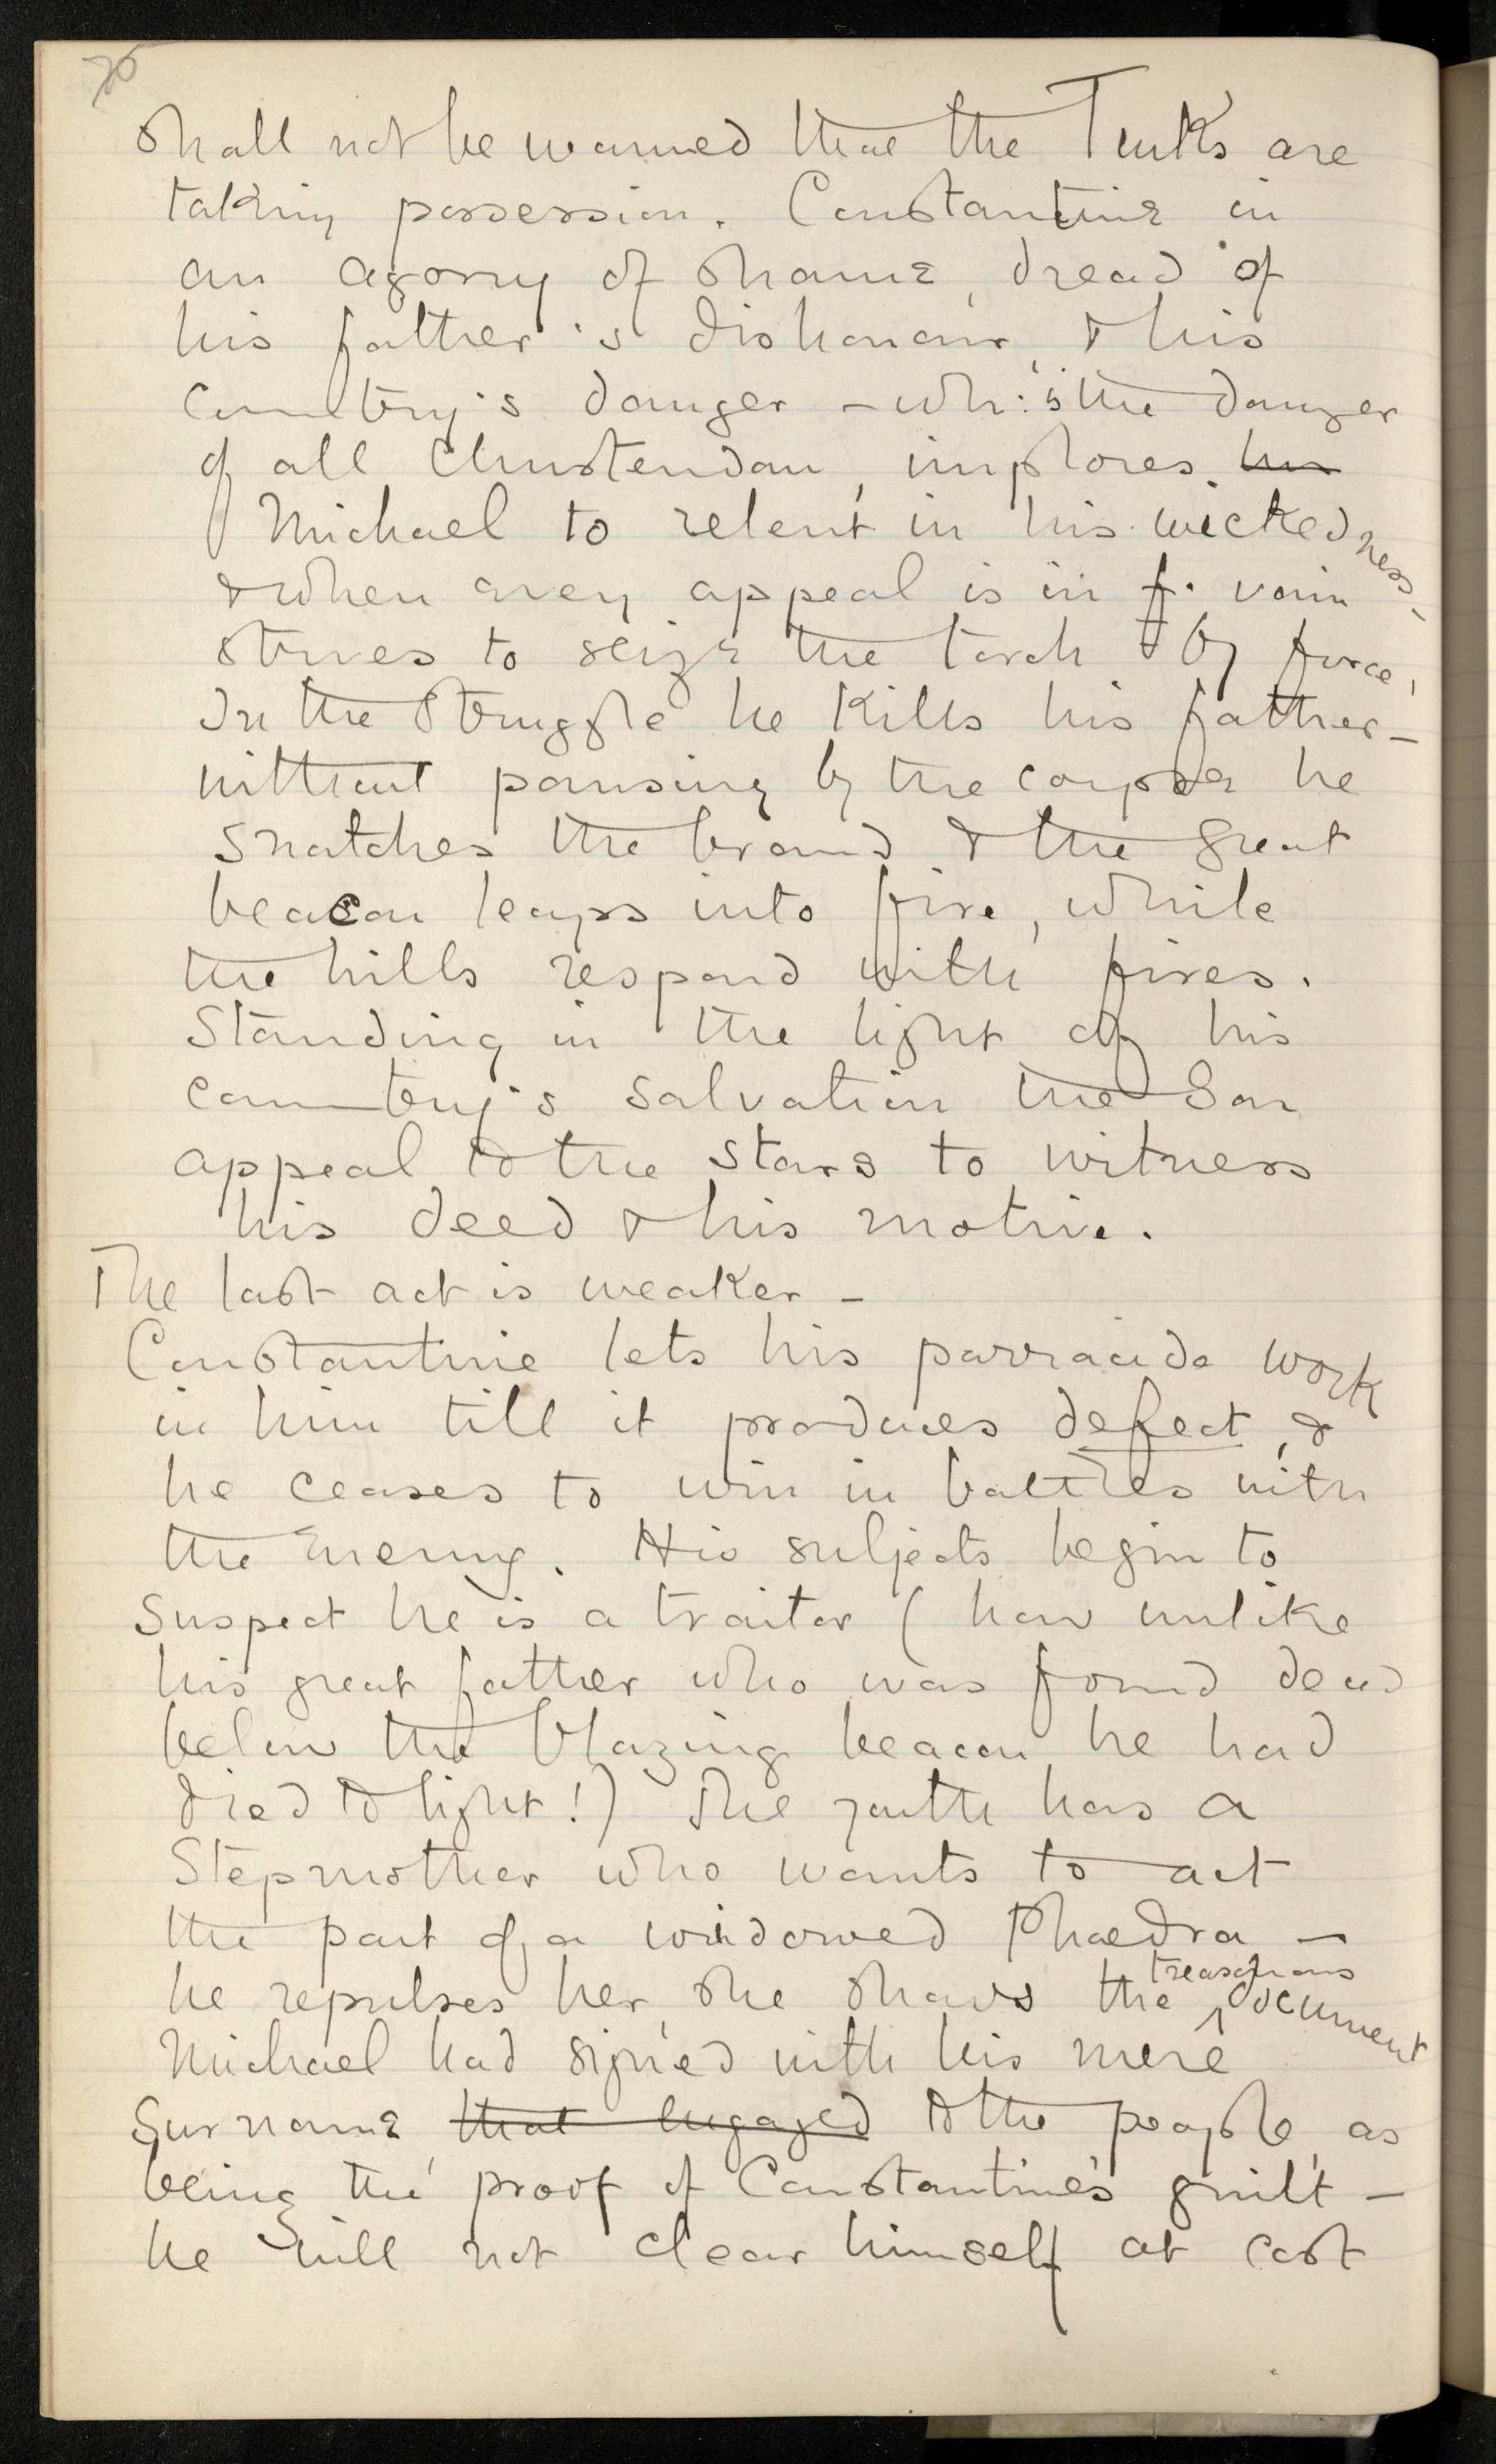 76
shall not be warned that the Turks are
taking possession. Constantine in
an agony of shame, dread of
his father's dishonour, & his
country's danger – wh: is the danger
of all Christendom, implores his
Michael to relent in his wickedness,
& when every appeal is in f. vain
strives to seize the torch by force,
In the struggle he kills his father –
without pausing by the corpse he
snatches the brand & the great
beacon leaps into fire, while
the hills respond with fires.
Standing in the light of his
country's salvation the Son
appeal to the stars to witness
his deed & his motive.
The last act is weaker –
Constantine lets his parracide work
in him till it produces defect, &
he ceases to win in battles with
the Enemy. His subjects begin to
suspect he is a traitor (how unlike
his great father who was found dead
below the blazing beacon he had
died to light!) The youth has a
Stepmother who wants to act
the part of a widowed Phaedra –
he repulses her, she shows the treasonous document
Michael had signed with his mere
Surname that engaged to the people, as
being the proof of Constantine's guilt –
he will not clear himself at cost